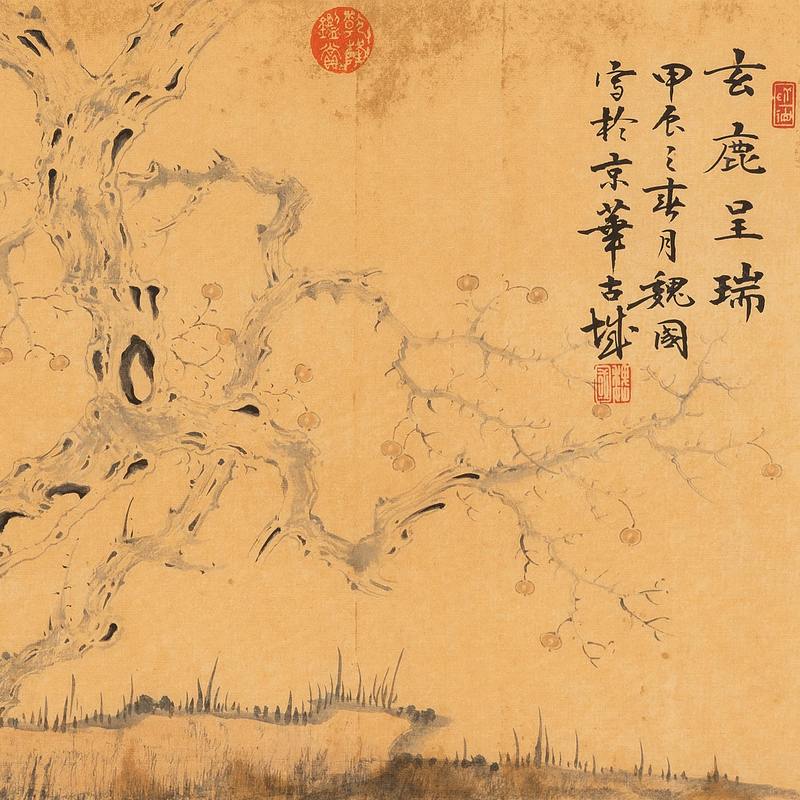 玄鹿呈瑞
甲辰之春月魏國
寫於京華古城